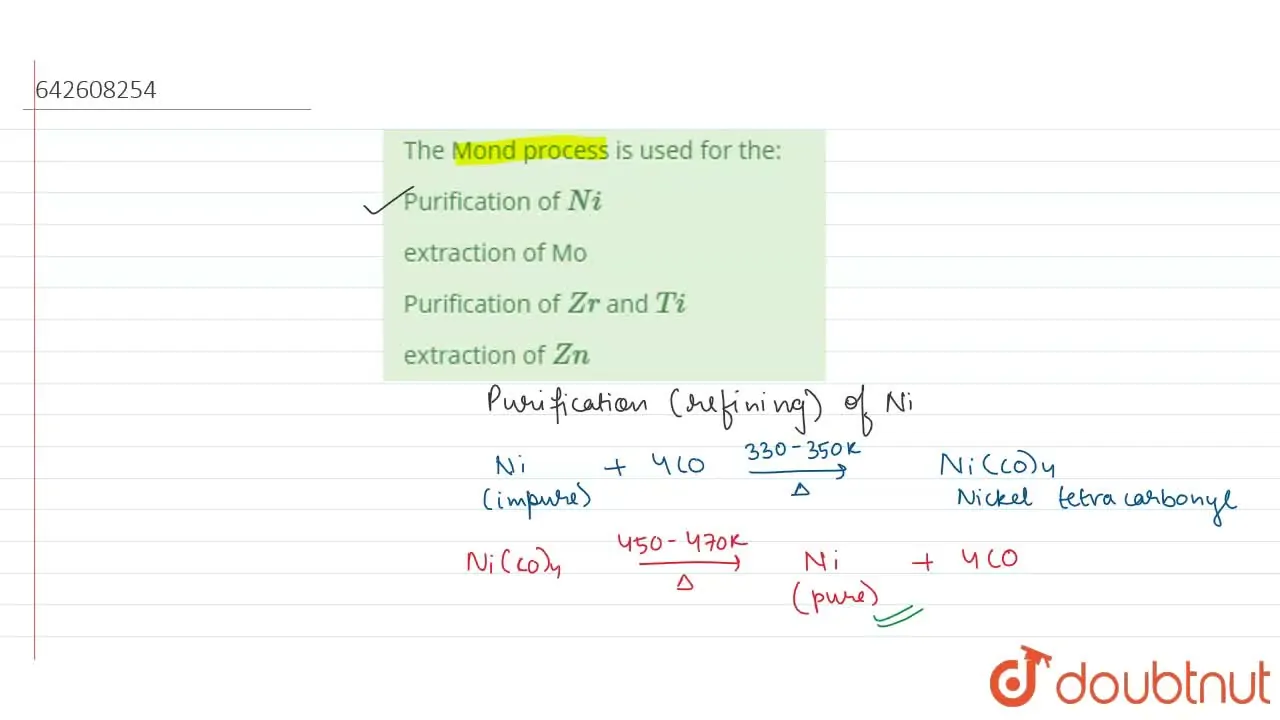 642608254
The Mond process is used for the:
Purification of Ni
extraction of Mo
Purification of Zr and Ti
extraction of Zn
Purification (refining) of Ni
Ni + 4CO 330-350K Δ Ni(CO)4
(impure) Nickel tetra carbonyl
Ni(CO)4 450-470K Δ Ni + 4CO
(pure)
doubtnut